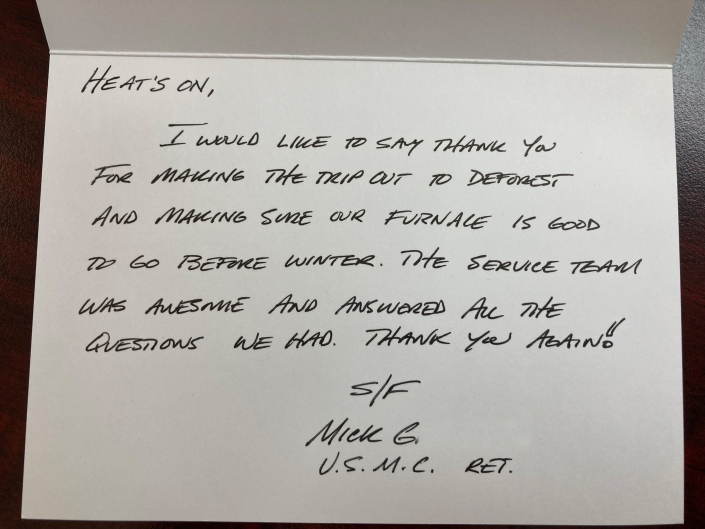 HEAT'S ON,
I WOULD LIKE TO SAY THANK YOU
FOR MAKING THE TRIP OUT TO DEFOREST
AND MAKING SURE OUR FURNACE IS GOOD
TO GO BEFORE WINTER. THE SERVICE TEAM
WAS AWESOME AND ANSWERED ALL THE
QUESTIONS WE HAD. THANK YOU AGAIN!!
S/F
MICK G.
U.S.M.C. RET.